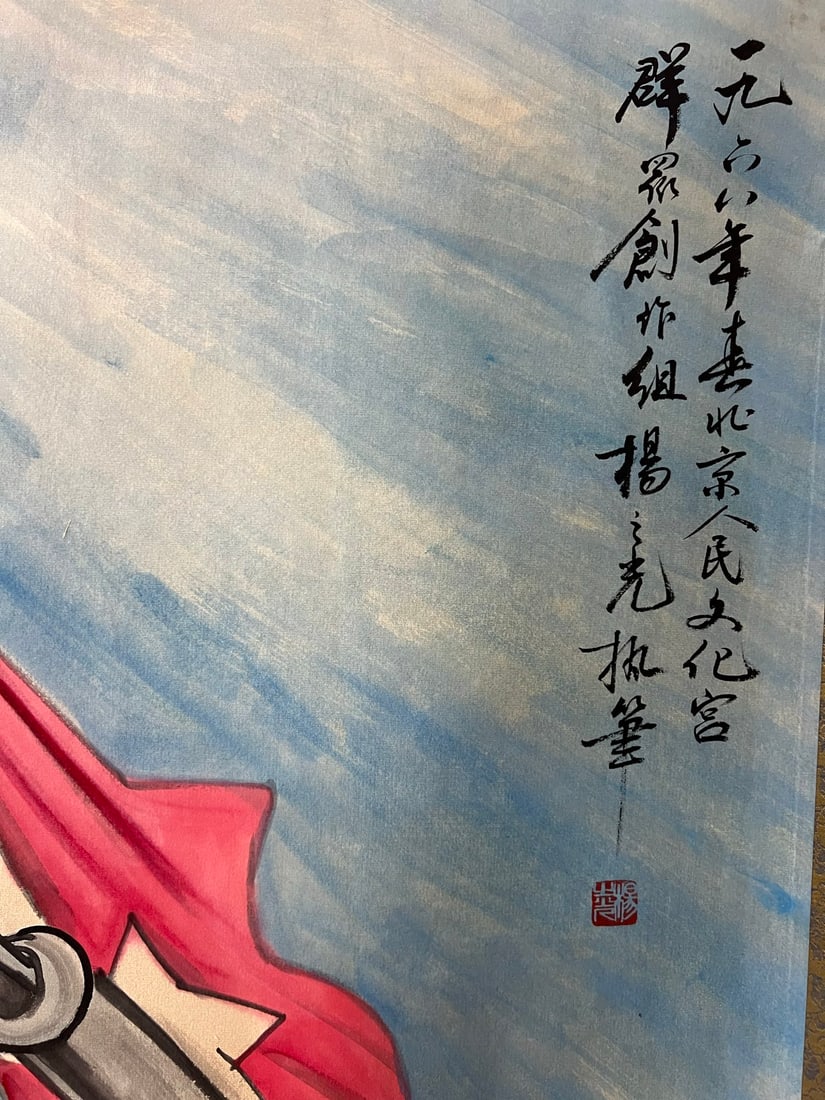 一九六八年春北京人民文化宮
群眾創作組楊之光执筆
楊之光